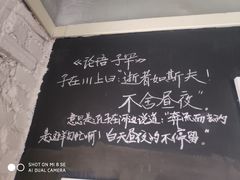 《论语·子罕》
子在川上曰:逝者如斯夫!
不舍昼夜”。
意思是孔子在河边说道:“奔流而去的
是这样匆忙啊!白天昼夜的不停留。”
SHOT ON MI 8 SE
AI DUAL CAMERA